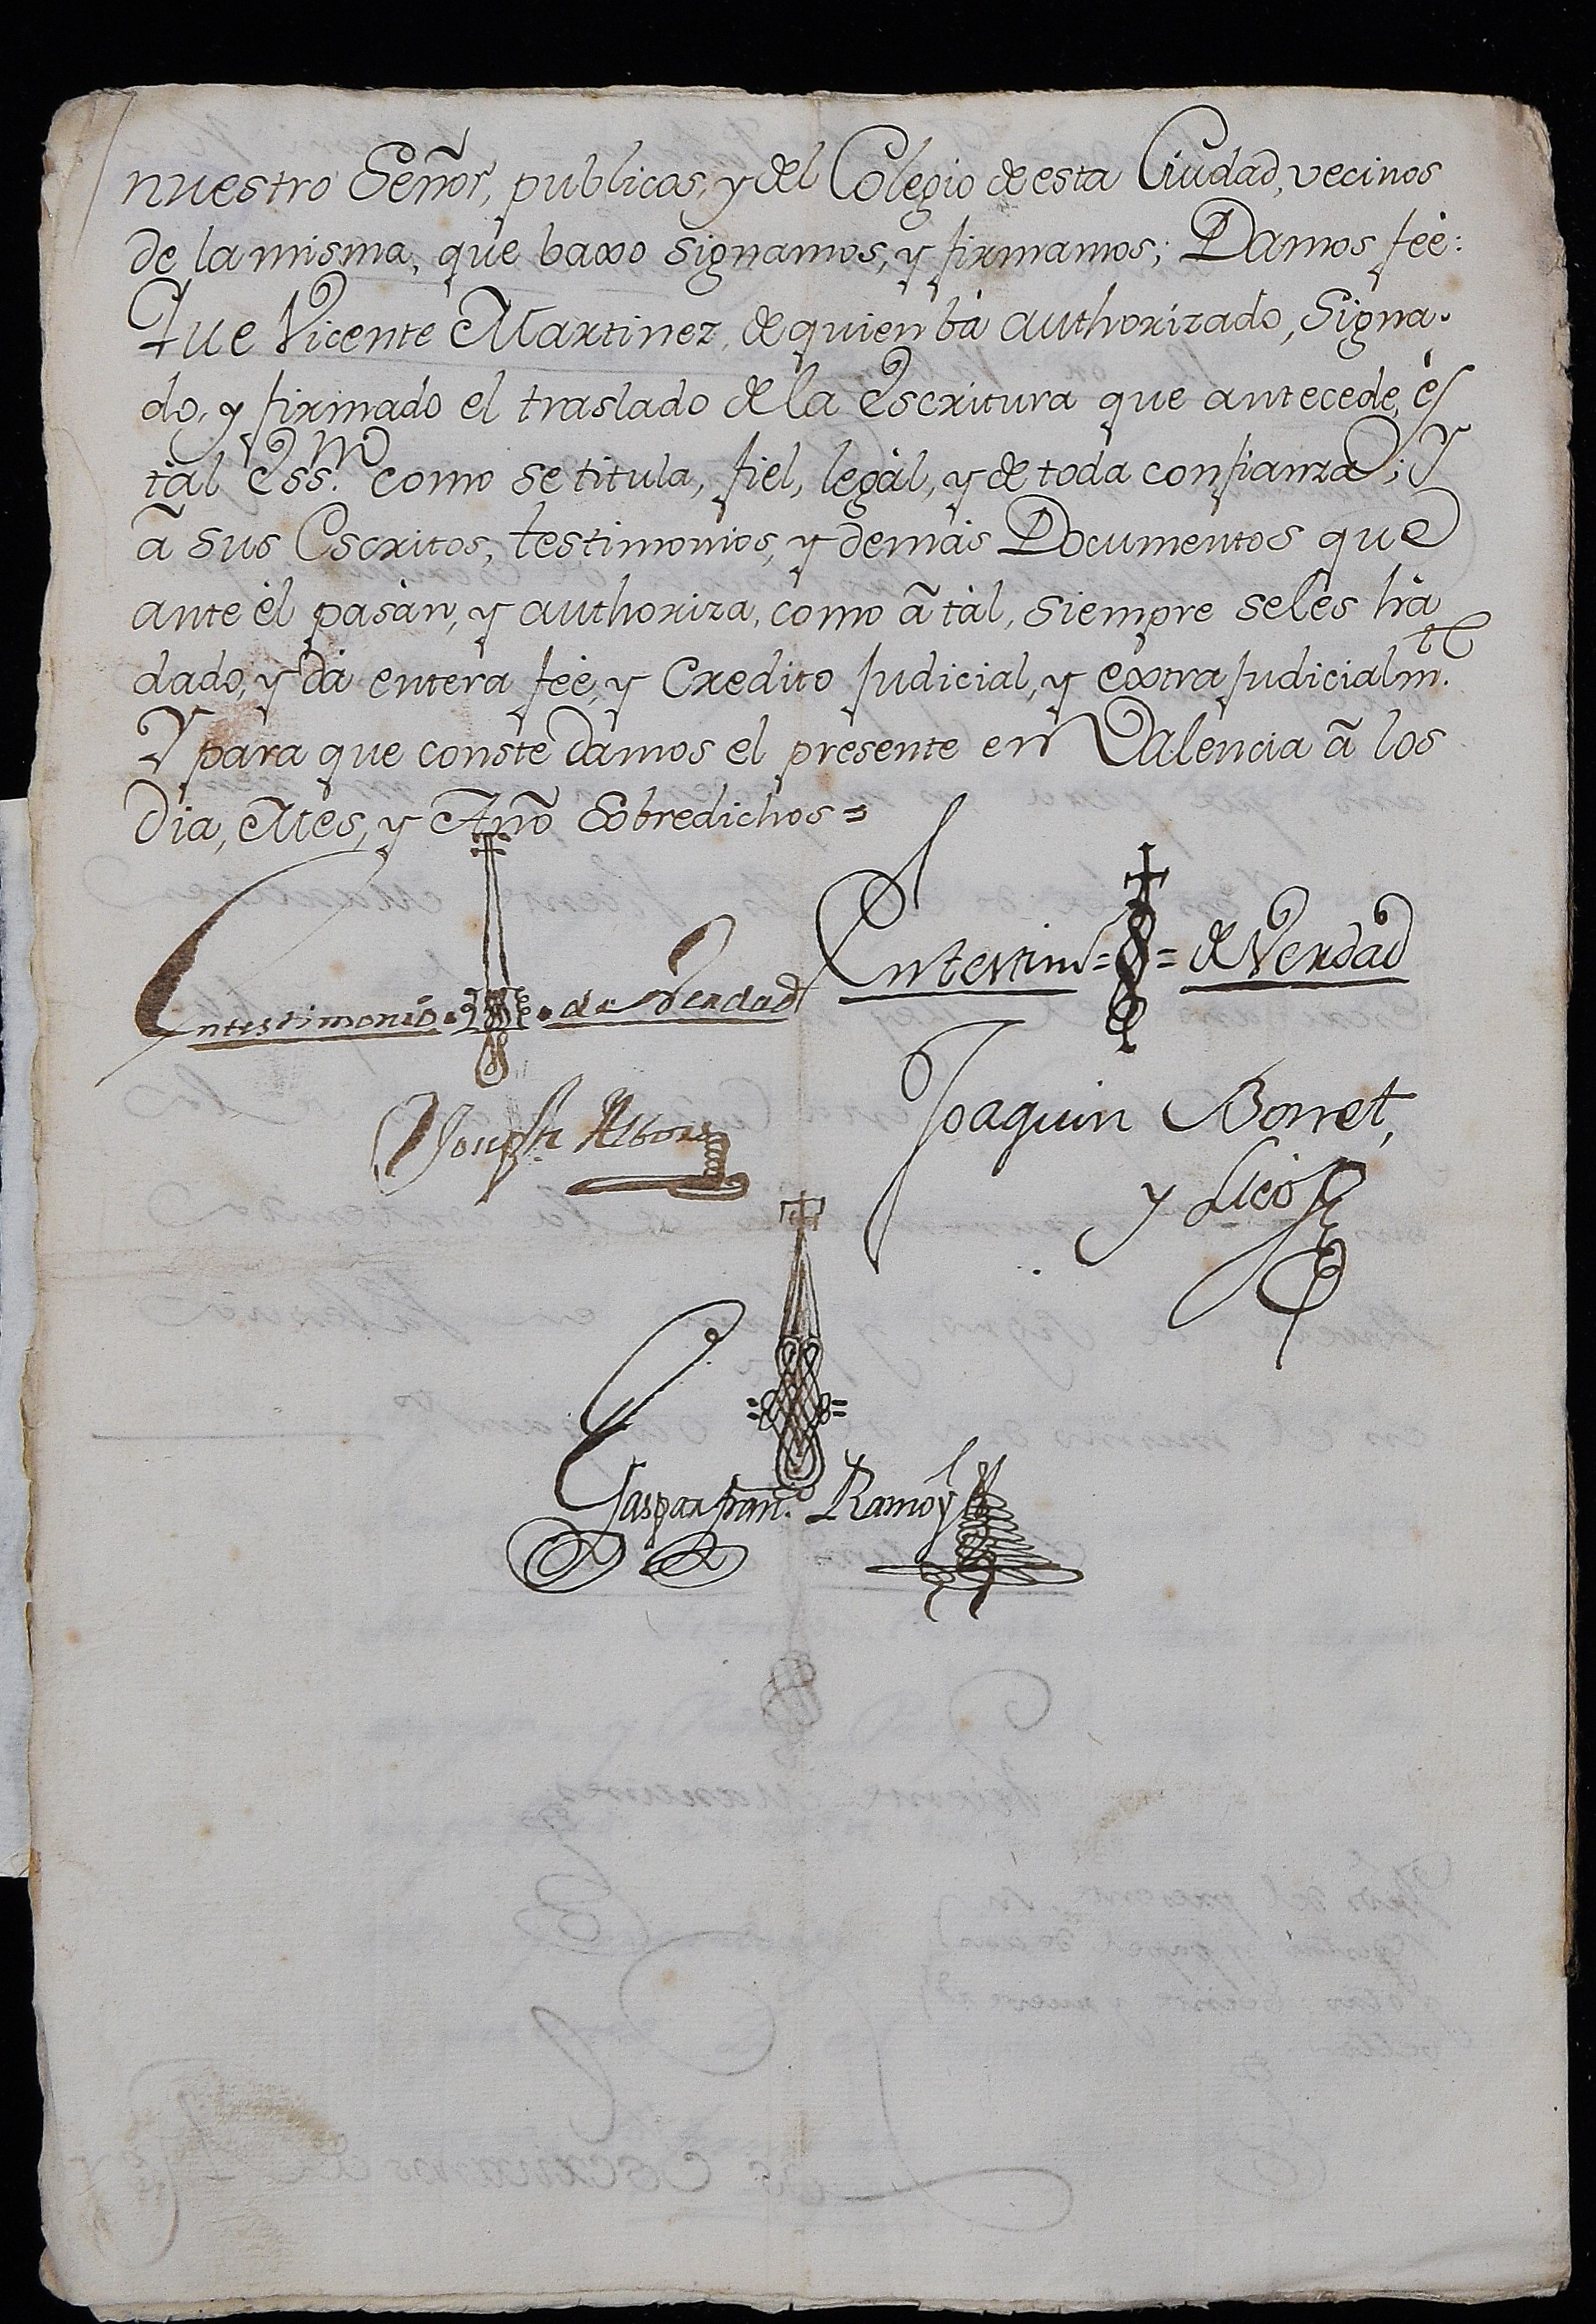 nuestro Señor, publicos, y del Colegio de esta Ciudad, vecinos
de la misma, que baxo signamos, y firmamos; Damos feé:
Que Vicente Martinez, de quien bá authorizado, Signa-
do, y firmado el traslado de la Escritura que antecede, és
tál Essno. como se titula, fiel, legál, y de toda confianza; y
á sus Escritos, testimonios, y demás Documentos que
ante él pasán, y authoriza, como á tál, siempre se lés há
dado, y dá entera feé, y Credito Judicial, y extra Judicialmte.
Y para que conste damos el presente en Valencia á los
Dia, Mes, y Año Sobredichos =
En testimonio de Verdad
En testimo = = de Verdad
Joseph
Joaquin Borret,
y Lieo
Gaspar Franco. Ramo